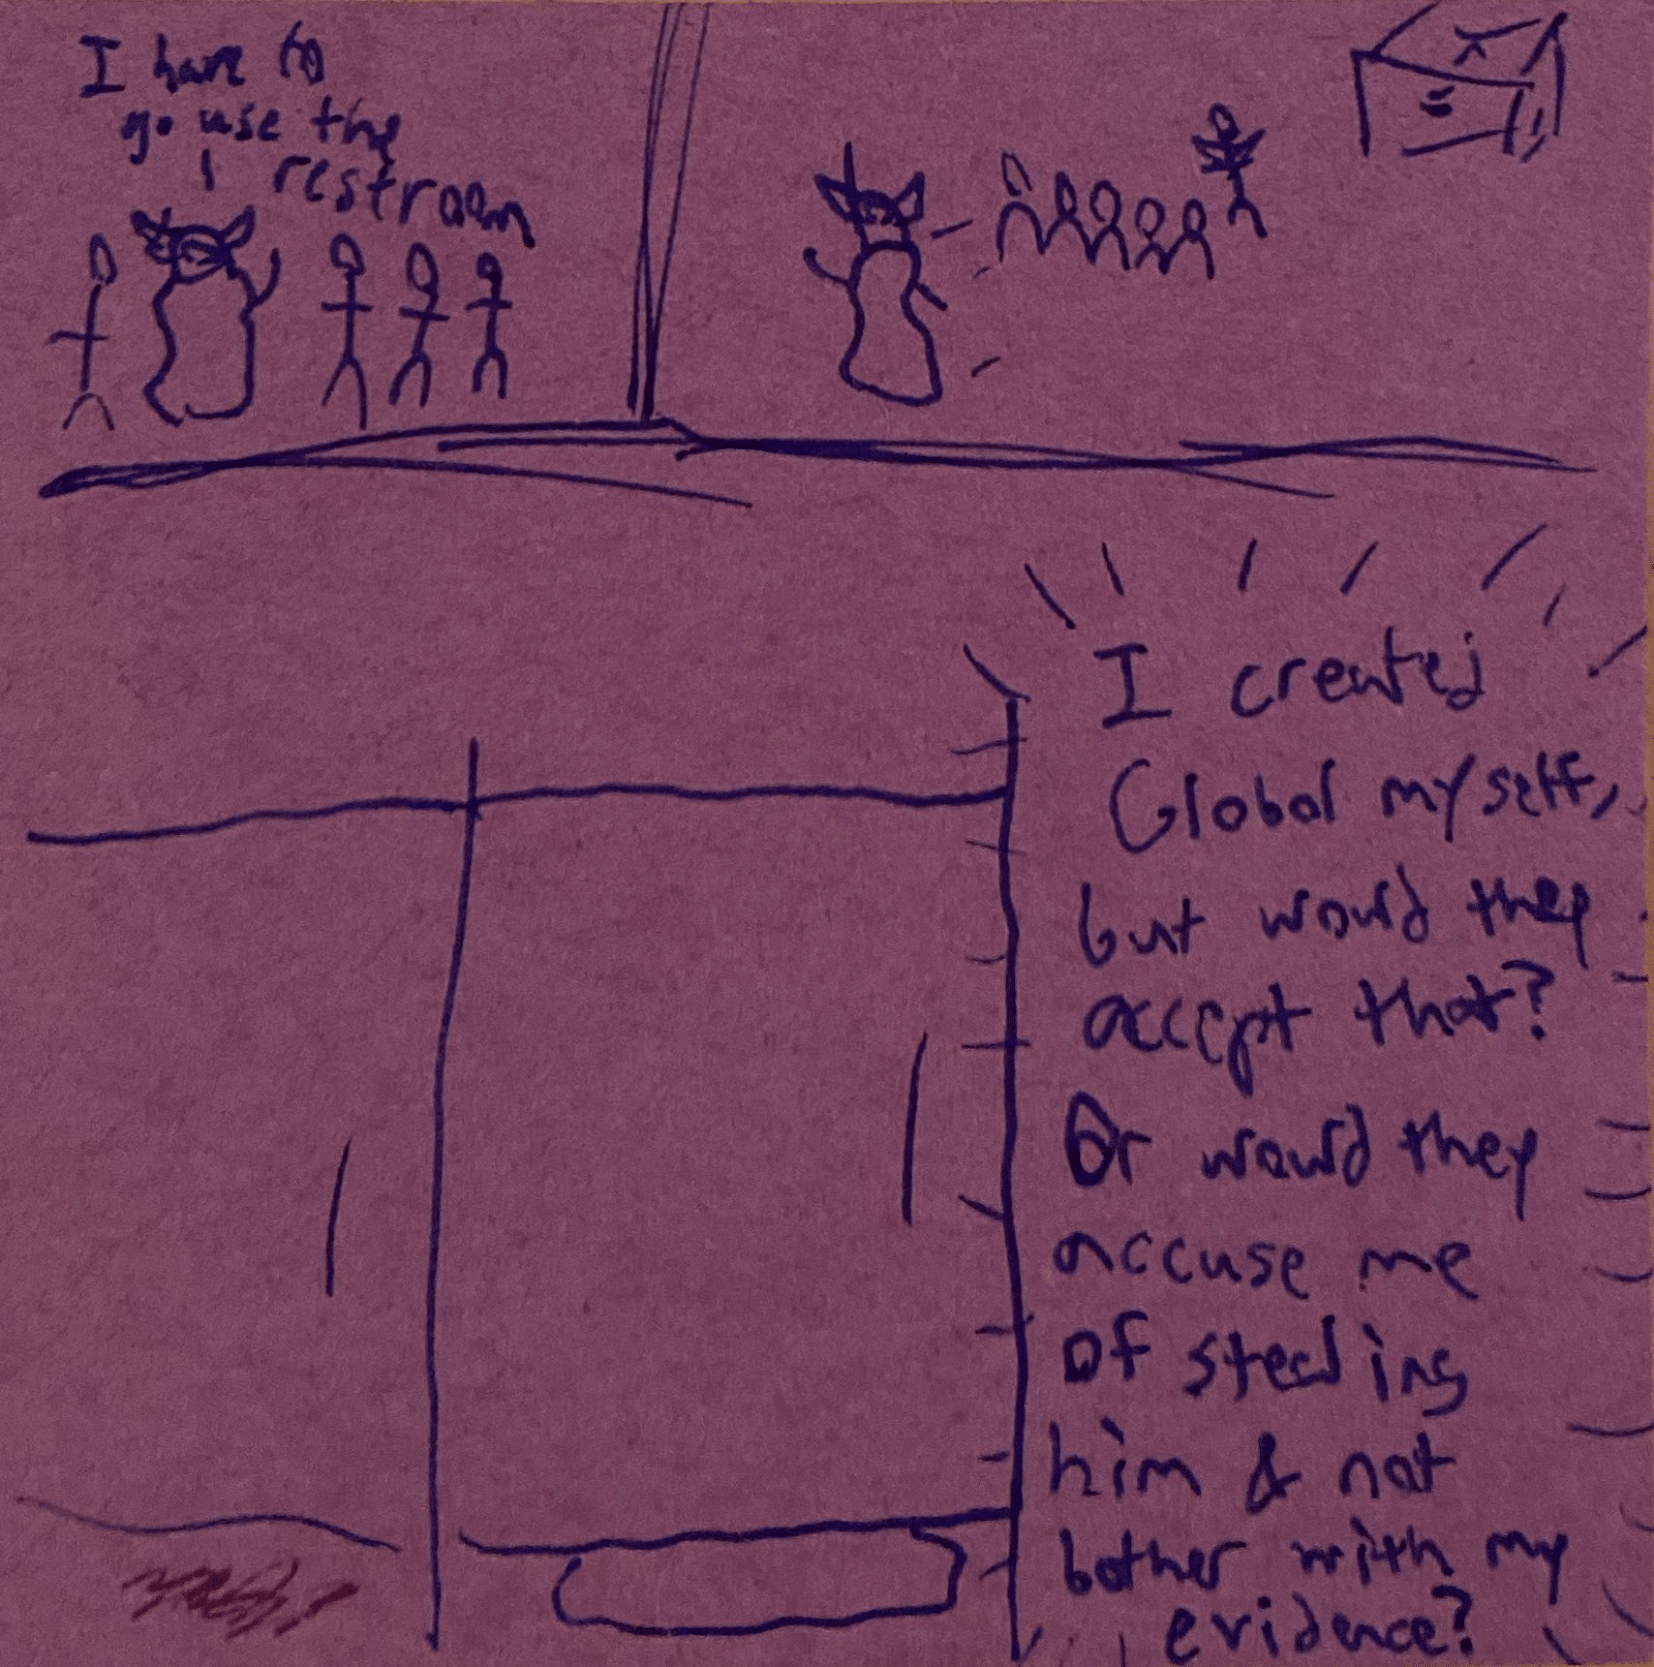 I have to
go use the
restroom
I created
Global myself,
but would they
accept that?
Or would they
accuse me
of stealing
him & not
bother with my
evidence?